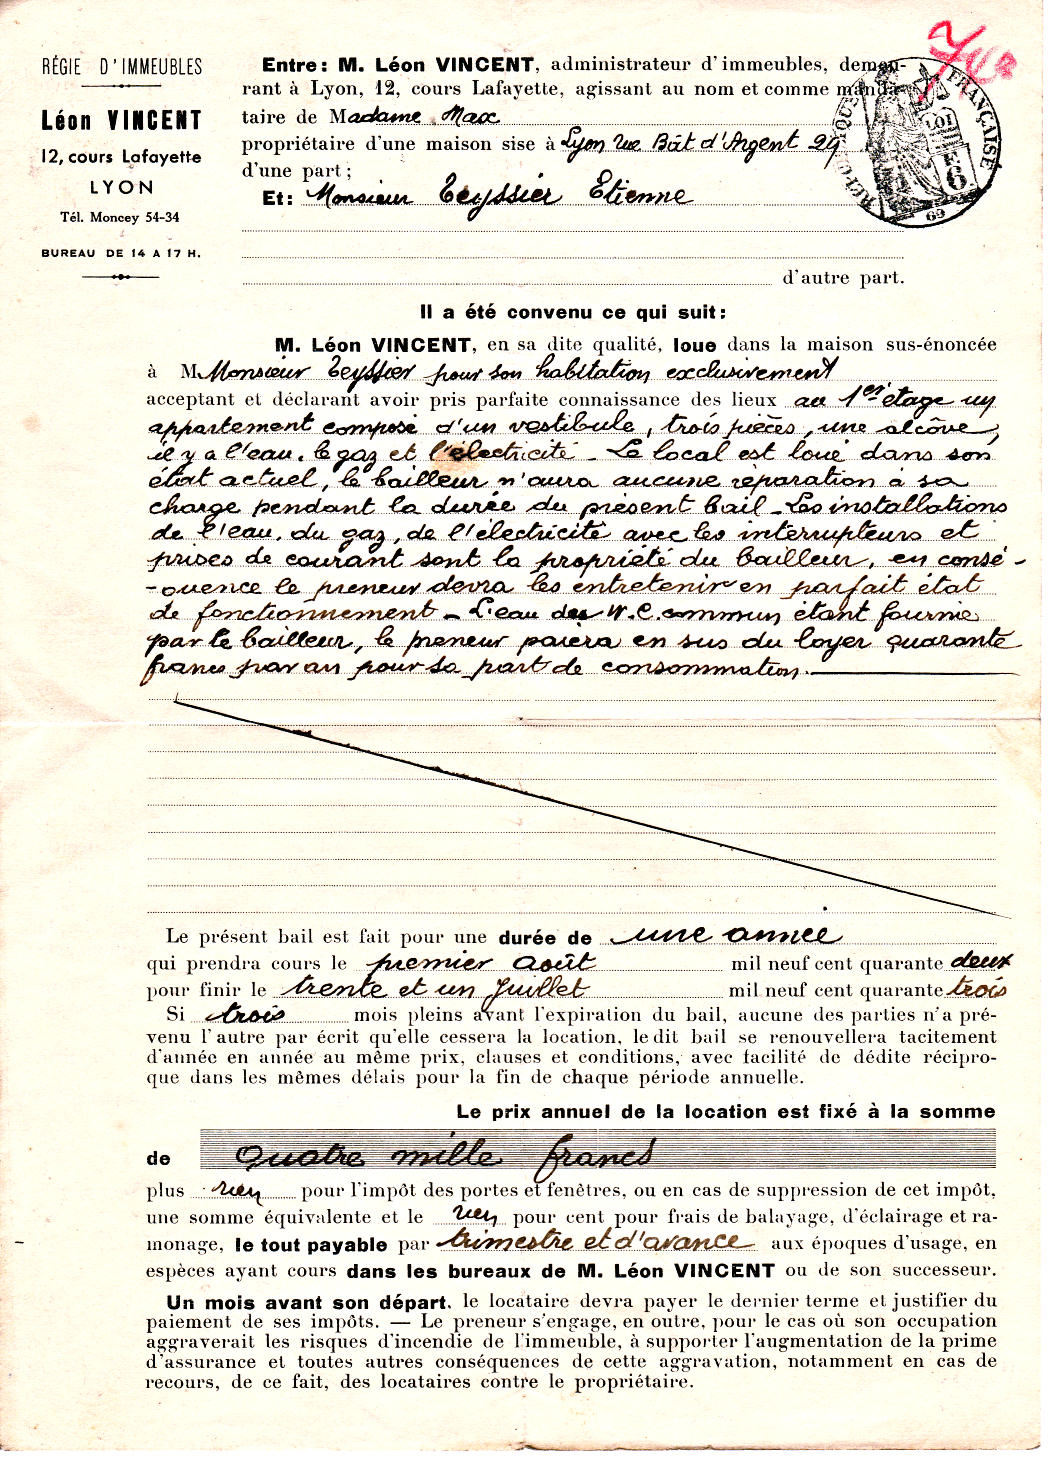 RÉGIE D'IMMEUBLES
Léon VINCENT
12, cours Lafayette
LYON
Tél. Moncey 54-34
BUREAU DE 14 A 17 H.
Entre: M. Léon VINCENT, administrateur d'immeubles, demeu-
rant à Lyon, 12, cours Lafayette, agissant au nom et comme manda-
taire de Madame Max
propriétaire d'une maison sise à Lyon rue Bât d'Argent 29
d'une part;
Et: Monsieur Teyssier Etienne
d'autre part.
FRANÇAISE
LOI
F
6
69
Il a été convenu ce qui suit:
M. Léon VINCENT, en sa dite qualité, loue dans la maison sus-énoncée
à M. Monsieur Teyssier pour son habitation exclusivement
acceptant et déclarant avoir pris parfaite connaissance des lieux au 1er étage un
appartement composé d'un vestibule, trois pièces, une alcôve,
il y a l'eau, le gaz et l'électricité - Le local est loué dans son
état actuel, le bailleur n'aura aucune réparation à sa
charge pendant la durée du présent bail - Les installations
de l'eau, du gaz, de l'électricité avec les interrupteurs et
prises de courant sont la propriété du bailleur, en consé-
-quence le preneur devra les entretenir en parfait état
de fonctionnement - L'eau des W.C. commun étant fournie
par le bailleur, le preneur paiera en sus du loyer quarante
francs par an pour sa part de consommation.
Le présent bail est fait pour une durée de une année
qui prendra cours le premier Août mil neuf cent quarante deux
pour finir le trente et un Juillet mil neuf cent quarante trois
Si trois mois pleins avant l'expiration du bail, aucune des parties n'a pré-
venu l'autre par écrit qu'elle cessera la location, le dit bail se renouvellera tacitement
d'année en année au même prix, clauses et conditions, avec facilité de dédite récipro-
que dans les mêmes délais pour la fin de chaque période annuelle.
Le prix annuel de la location est fixé à la somme
de quatre mille francs
plus rien pour l'impôt des portes et fenêtres, ou en cas de suppression de cet impôt,
une somme équivalente et le rien pour cent pour frais de balayage, d'éclairage et ra-
monage, le tout payable par trimestre et d'avance aux époques d'usage, en
espèces ayant cours dans les bureaux de M. Léon VINCENT ou de son successeur.
Un mois avant son départ, le locataire devra payer le dernier terme et justifier du
paiement de ses impôts. — Le preneur s'engage, en outre, pour le cas où son occupation
aggraverait les risques d'incendie de l'immeuble, à supporter l'augmentation de la prime
d'assurance et toutes autres conséquences de cette aggravation, notamment en cas de
recours, de ce fait, des locataires contre le propriétaire.